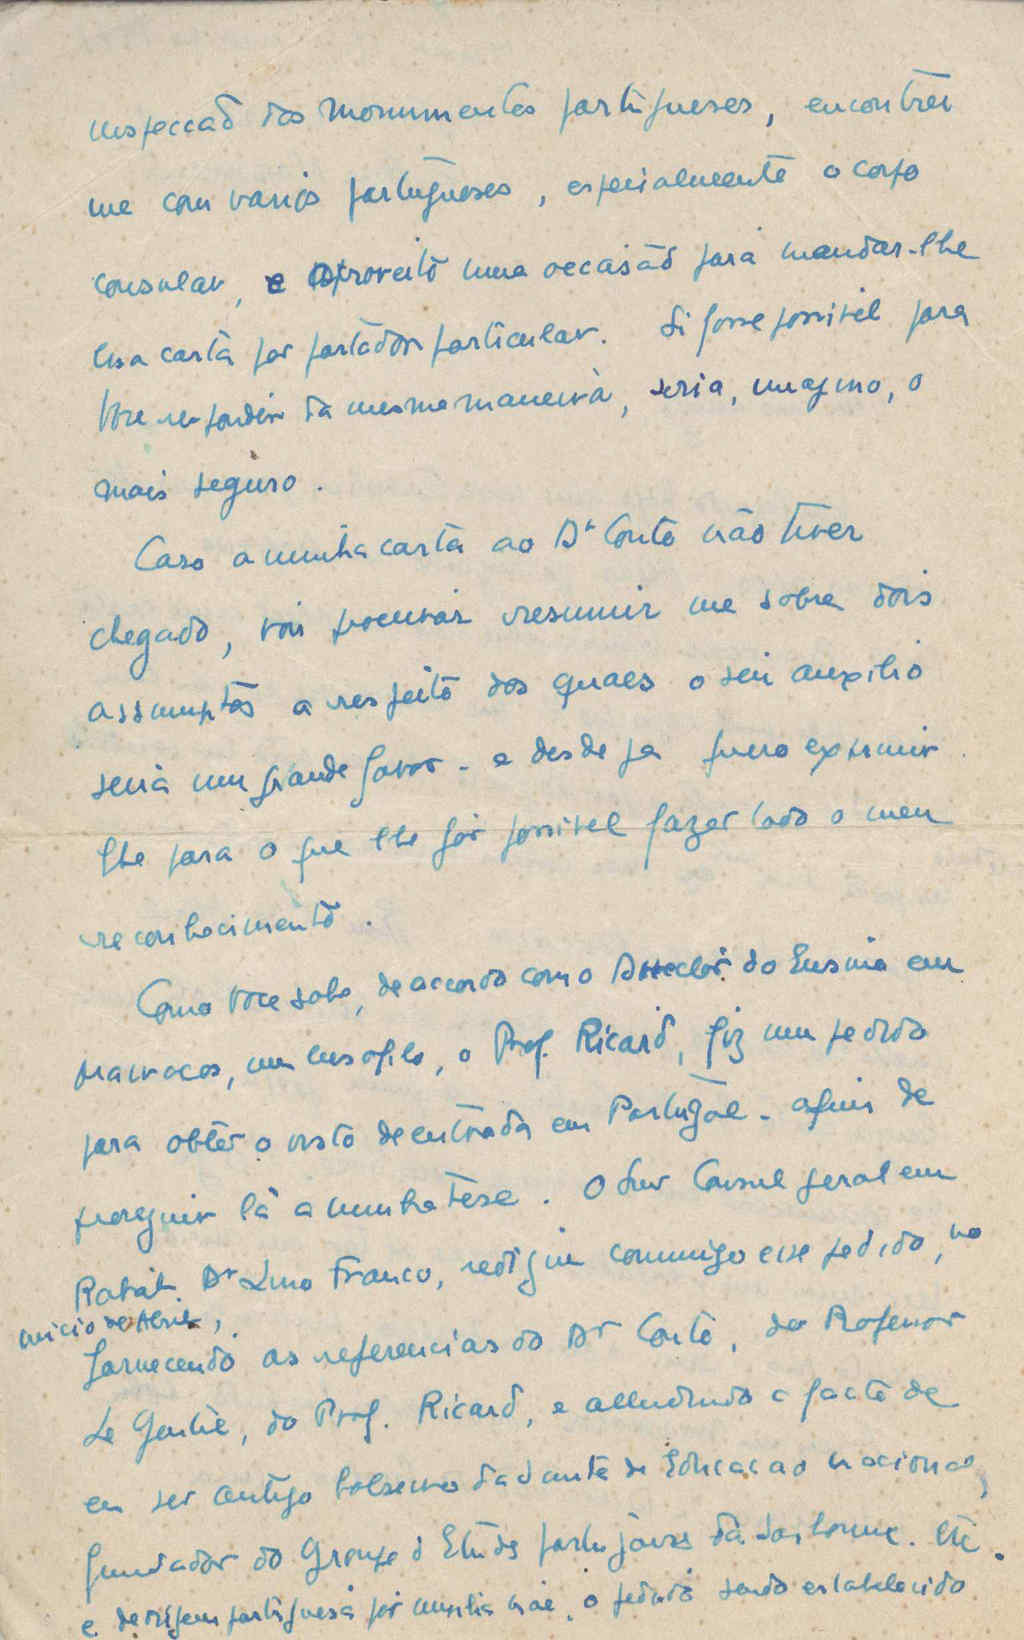 inspecção dos monumentos portugueses, encontrei
me com varios portugueses, especialmente o corpo
consular, e aproveito uma occasião para mandar-lhe
esta carta por portador particular. Si fosse possivel para
Voce responder da mesma maneira, seria, imagino, o
mais seguro.
Caso a minha carta ao Dr Couto não tiver
chegado, vou procurar resumir me sobre dois
assumptos a respeito dos quaes o seu auxilio
seria um grande favor - e desde ja quero exprimir
lhe para o que lhe fôr possivel fazer todo o meu
reconhecimento.
Como Voce sabe, de accordo com o Director do Ensino em
Marrocos, um lusofilo, o Prof. Ricard, fiz um pedido
para obter o visto de entrada em Portugal - afim de
proseguir lá a minha tese. O Snr Consul geral em
Rabat Dr Lino Franco, redigiu commigo esse pedido, no
inicio de Abril,
fornecendo as referencias do Dr Couto, do Professor
Le Gentil, do Prof. Ricard, e alludindo o facto de
eu ser antigo bolseiro da Junta de Educacao nacional,
fundador do Groupe d Etudes portugaises da Sorbonne. etc.
e de origem portuguesa por minha mãe. o pedido sendo estabelecido